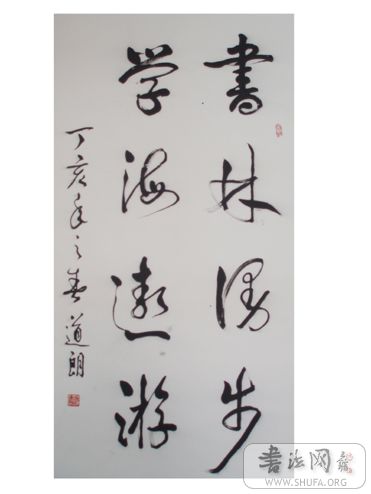 書林漫步
学海遨游
丁亥年之春道朗
書法网
WWW.SHUFA.ORG